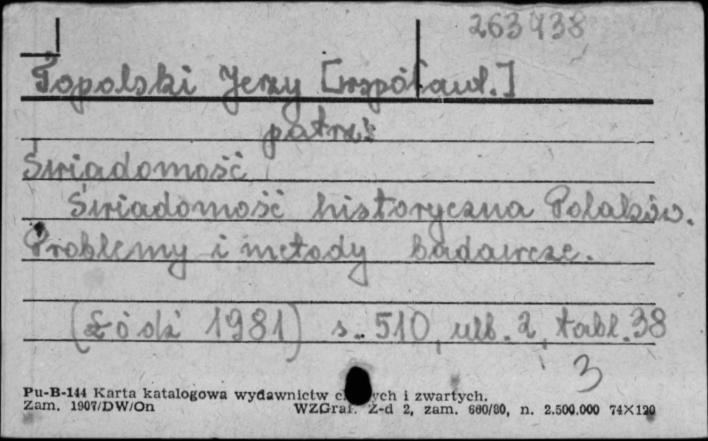 263438
Topolski Jerzy [współaut.]
patrz:
Świadomość
Świadomość historyczna Polaków.
Problemy i metody badawcze.
(Łódź 1981) s. 510, ulb. 2, tabl. 38
3
Pu-B-144 Karta katalogowa wydawnictw i zwartych.
Zam. 1907/DW/On WZGraf. Z-d 2, zam. 660/80, n. 2.500.000 74×120